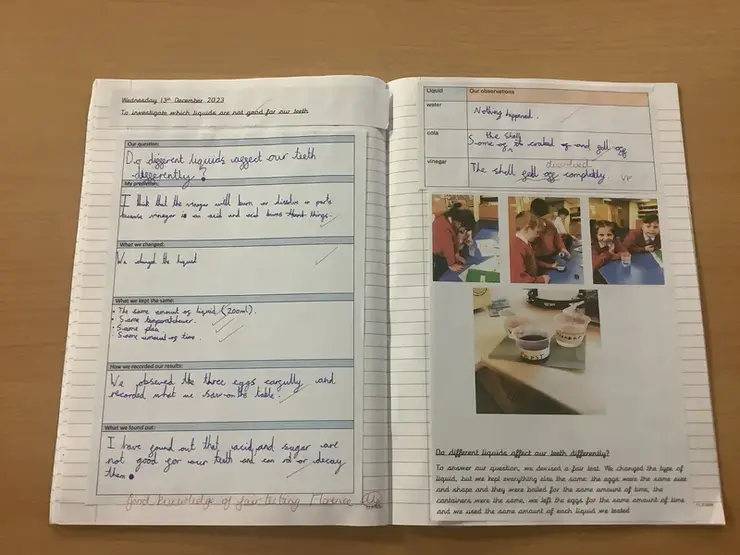 Wednesday 13th December 2023
To investigate which liquids are not good for our teeth
Our question:
Do different liquids affect our teeth
differently?
My prediction:
I think that the vinegar will burn or dissolve in parts
because vinegar is an acid and acid burns things.
What we changed:
We changed the liquid
What we kept the same:
• The same amount of liquid (200ml).
• Same
• Same place
Same amount of time.
How we recorded our results:
We observed the three eggs carefully and
recorded what we saw on the table.
What we found out:
I have found out that acid and sugar are
not good for our teeth and can rot or decay
them.
Good knowledge of fair testing Florence
Liquid Our observations
water Nothing happened.
cola the shell
Some of craked of and fell off
vinegar dissolved
The shell fell off completly
vr
Do different liquids affect our teeth differently?
To answer our question, we devised a fair test. We changed the type of
liquid, but we kept everything else the same: the eggs were the same size
and shape and they were boiled for the same amount of time, the
containers were the same, we left the eggs for the same amount of time
and we used the same amount of each liquid we tested